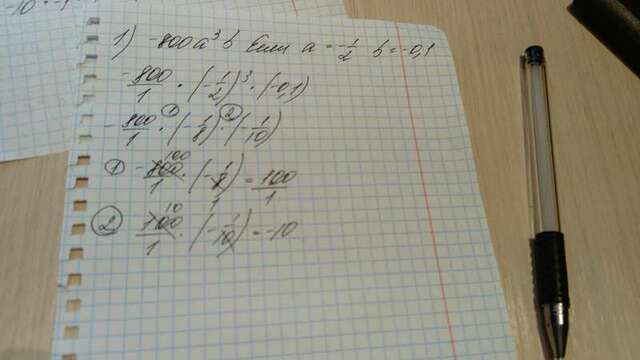 1) -800a³b Если a = -1/2 b = -0,1
-800/1 · (-1/2)³ · (-0,1)
-800/1 ·① (-1/8) ·② (-1/10)
① -800/1 100 · (-1/8 1) = 100/1
② 100/1 10 · (-1/10) = -10